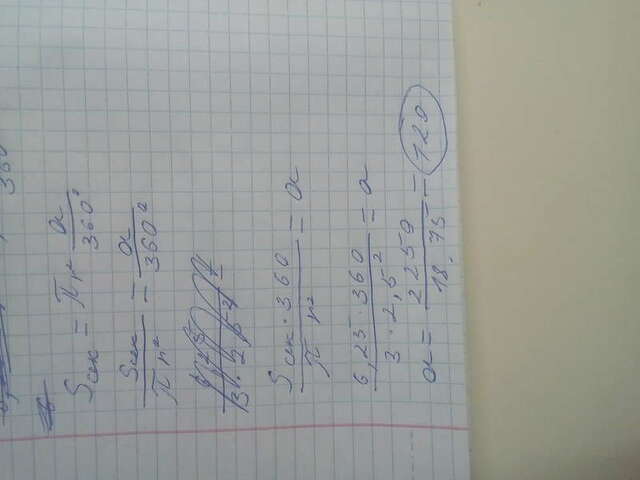 360
S сек = π r² α/360°
S сек/π r² = α/360°
S сек · 360/π r² = α
6,25 · 360/3 · 2,5² = α
α = 2250/18.75 = 120